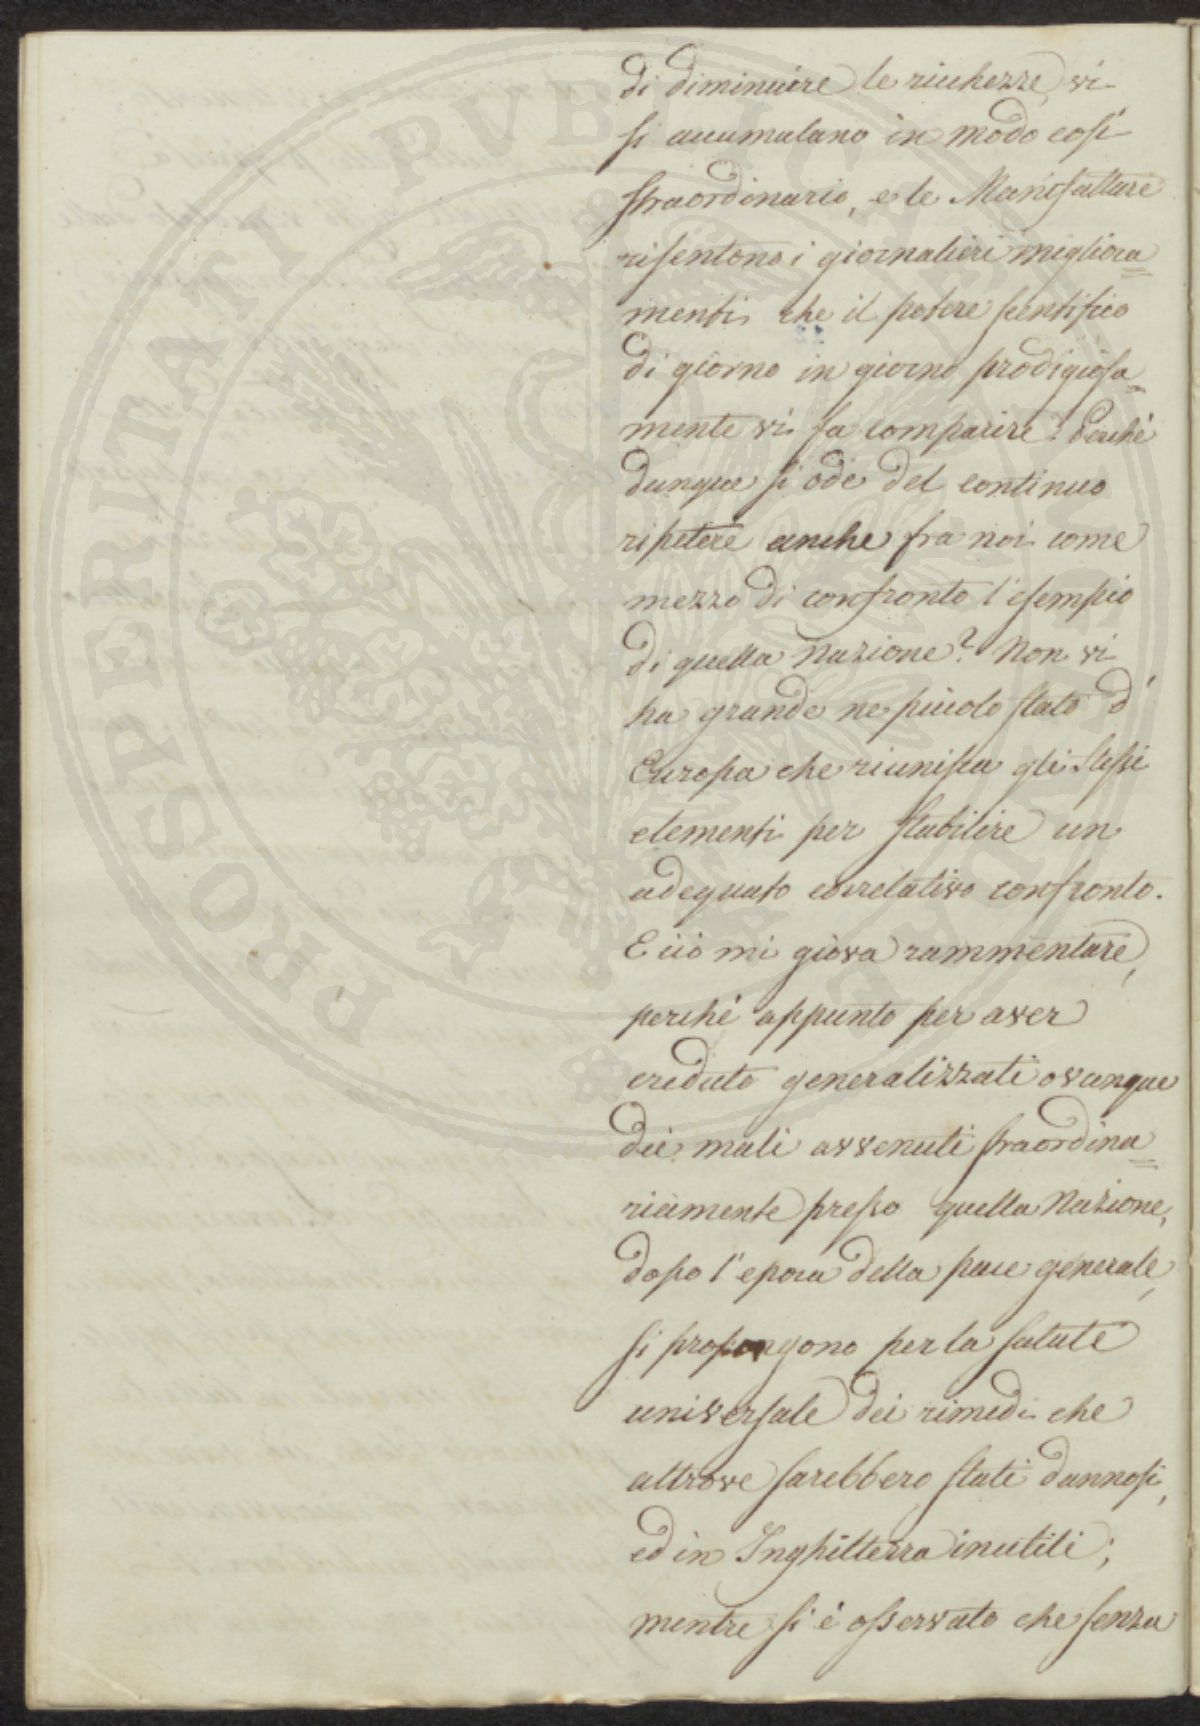 di diminuire le ricchezze vi
si accumulano in modo così
straordinario, e le Manifatture
risentono i giornalieri migliora=
menti che il potere scientifico
di giorno in giorno prodigiosa=
mente vi fa comparire. Perché
dunque si ode del continuo
ripetere anche fra noi come
mezzo di confronto l'esempio
di quella Nazione? Non vi
ha grande ne piccolo stato d'
Europa che riunisca gli stessi
elementi per stabilire un
adequato correlativo confronto.
E ciò mi giova rammentare,
perché appunto per aver
creduto generalizzati ovunque
dei mali avvenuti straordina=
riamente presso quella Nazione,
dopo l'epoca della pace generale,
si propongono per la salute
universale dei rimedi che
altrove sarebbero stati dannosi,
ed in Inghilterra inutili;
mentre si è osservato che senza
PROSPERITATI PUBLICAE